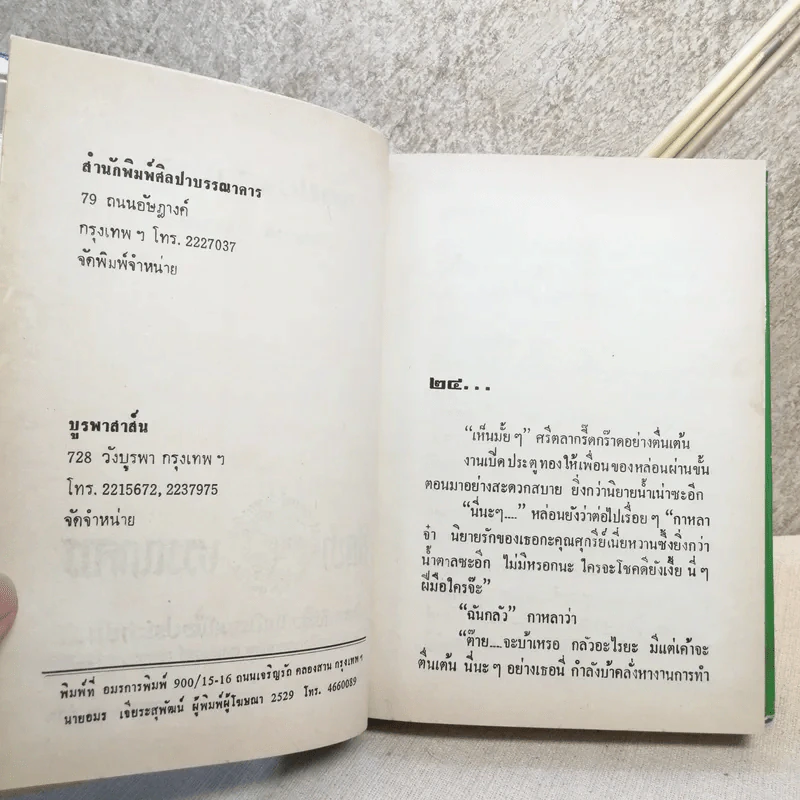 สำนักพิมพ์ศิลปาบรรณาคาร
79 ถนนอัษฎางค์
กรุงเทพ ฯ โทร. 2227037
จัดพิมพ์จำหน่าย
บูรพาสาส์น
728 วังบูรพา กรุงเทพ ฯ
โทร. 2215672, 2237975
จัดจำหน่าย
พิมพ์ที่ อมรการพิมพ์ 900/15-16 ถนนเจริญรัถ คลองสาน กรุงเทพ ฯ
นายอมร เจียระสุพัฒน์ ผู้พิมพ์ผู้โฆษณา 2529 โทร. 4660089
๒๔...
“เห็นมั้ย ๆ” ศรีตลากรี๊ดกร๊าดอย่างตื่นเต้น
งานเปิดประตูทองให้เพื่อนของหล่อนผ่านขั้น
ตอนมาอย่างสะดวกสบาย ยิ่งกว่านิยายน้ำเน่าซะอีก
“นี่นะๆ....” หล่อนยังว่าต่อไปเรื่อย ๆ “กาหลา
จ๋า นิยายรักของเธอกะคุณศุกรีย์เนี่ยหวานซึ้งยิ่งกว่า
น้ำตาลซะอีก ไม่มีหรอกนะ ใครจะโชคดียังเงี้ย นี่ ๆ
ฝีมือใครจ๊ะ”
“ฉันกลัว” กาหลาว่า
“ต๊าย....จะบ้าเหรอ กลัวอะไรยะ มีแต่เค้าจะ
ตื่นเต้น นี่นะ ๆ อย่างเธอนี่ กำลังบ้าคลั่งหางานการทำ